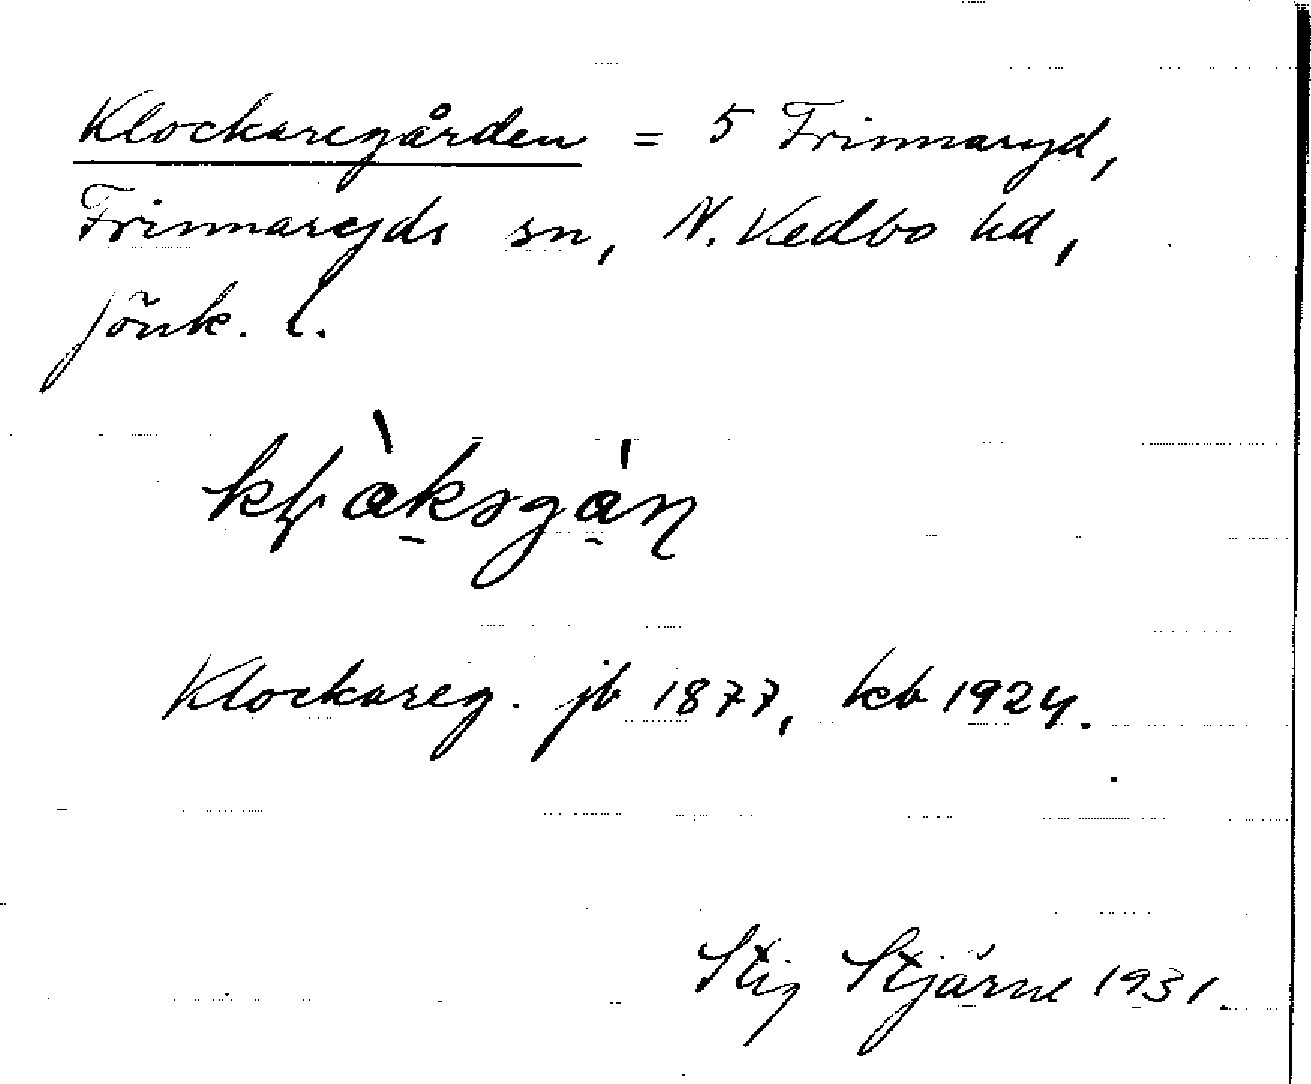 Klockaregården = 5 Frinnaryd,
Frinnaryds sn, N. Vedbo hd,
Jönk. l.
Klockareg. jb 1877, kb 1924.
Stig Stjärne 1931.